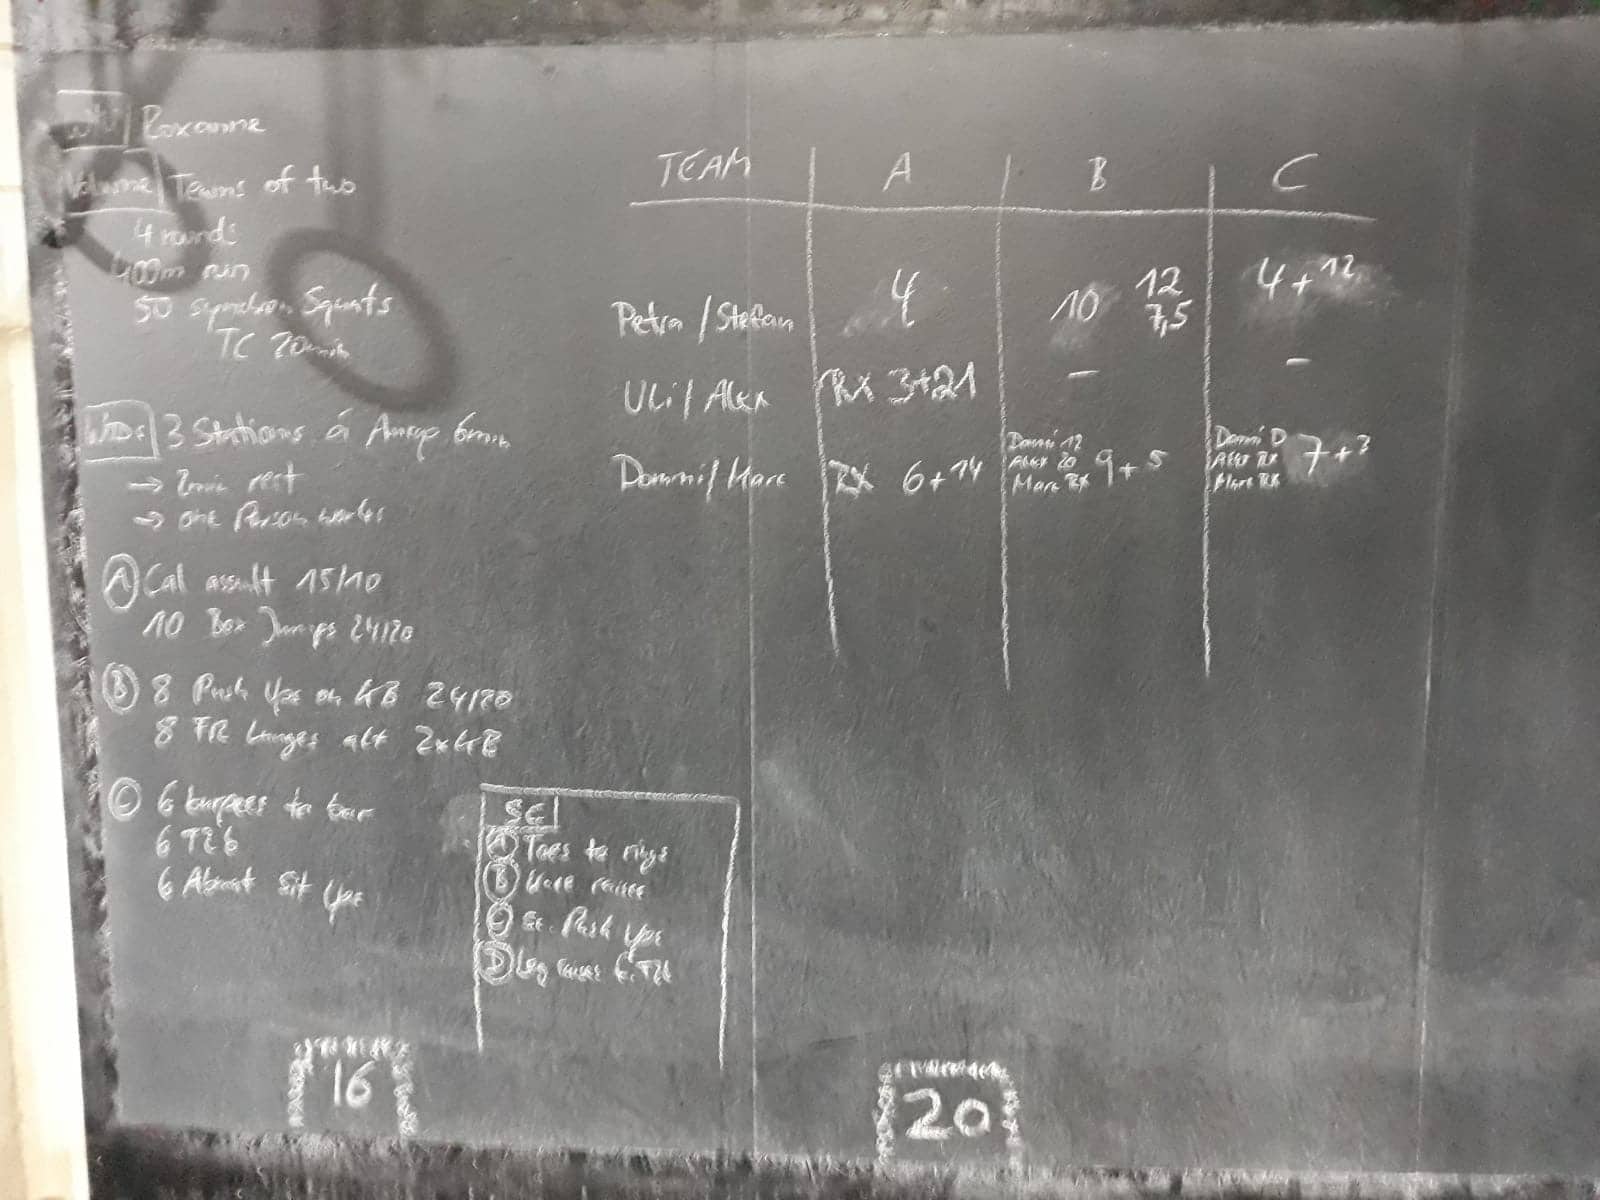 Roxanne
Volume Teams of two
4 rounds
400m run
50 synchron Squats
TC 20min
WOD: 3 Stations á Amrap 6min
→ 2min rest
→ one Person works
A Cal assault 15/10
10 Box Jumps 24/20
B 8 Push Ups on KB 24/20
8 FR Lunges alt 2xKB
C 6 burpees to bar
6 T2B
6 Abmat Sit Ups
SE
A Toes to rings
B
C Push Ups
D Leg raises
16
TEAM A B C
Petra / Stefan 4 10 12 7,5 4+12
Uli / Alex RX 3+21 - -
Domni / Marc RX 6+14 Domni 12 Alex 20 Marc RX 9+5 Domni D Alex RX Marc RX 7+3
20